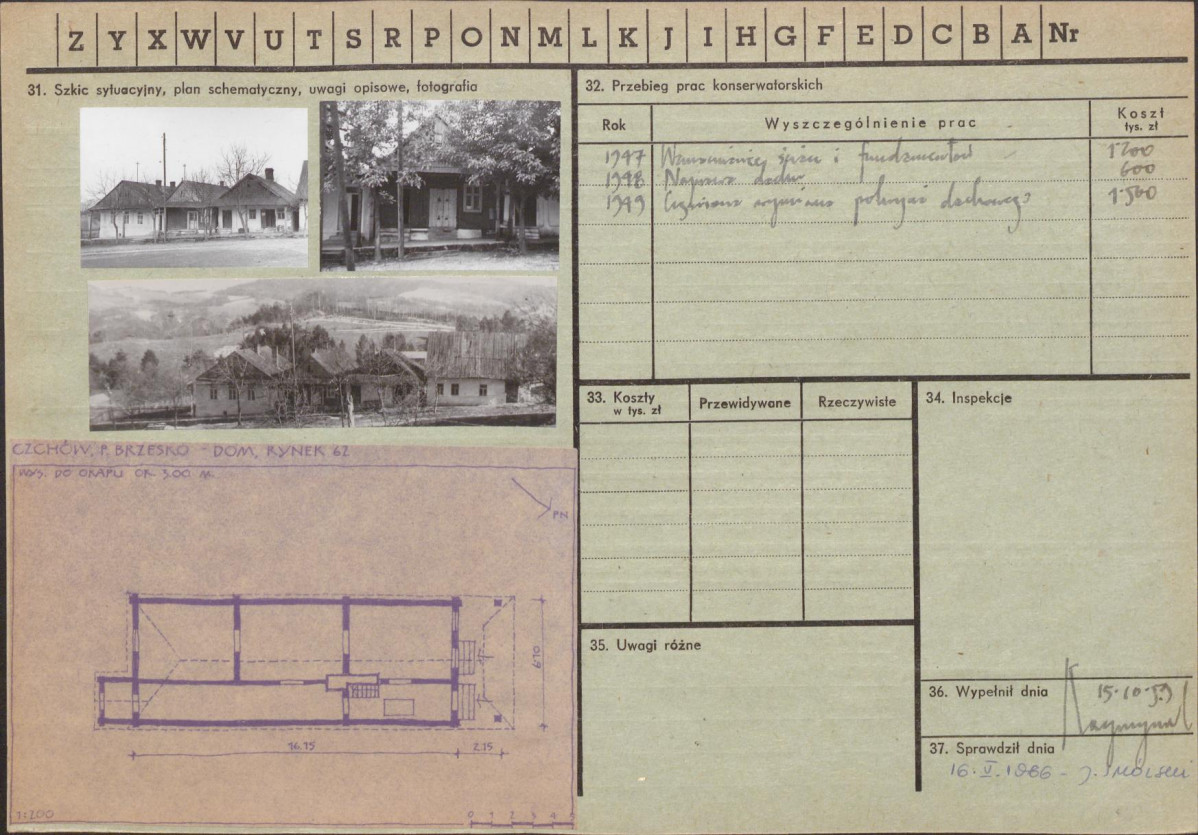 Z Y X W V U T S R P O N M L K J I H G F E D C B A Nr
31. Szkic sytuacyjny, plan schematyczny, uwagi opisowe, fotografia
CZCHÓW, P. BRZESKO - DOM, RYNEK 62
WYS. DO OKAPU OK. 3.00 M
PN
6.70
16.75
2.15
1:200
0 1 2 3 4 5
32. Przebieg prac konserwatorskich
Rok
Wyszczególnienie prac
Koszt
tys. zł
1947 i fundamentów 1200
1948 Naprawa dachu 600
1949 wymiana pokrycia dachowego 1500
33. Koszty
w tys. zł
Przewidywane
Rzeczywiste
34. Inspekcje
35. Uwagi różne
36. Wypełnił dnia 15.10.59
37. Sprawdził dnia
16. V. 1966 - J.